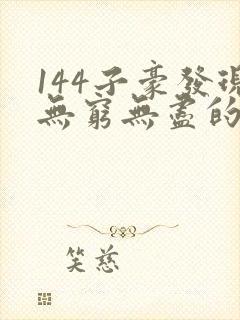 144子豪發現
無窮無盡的
笑慈